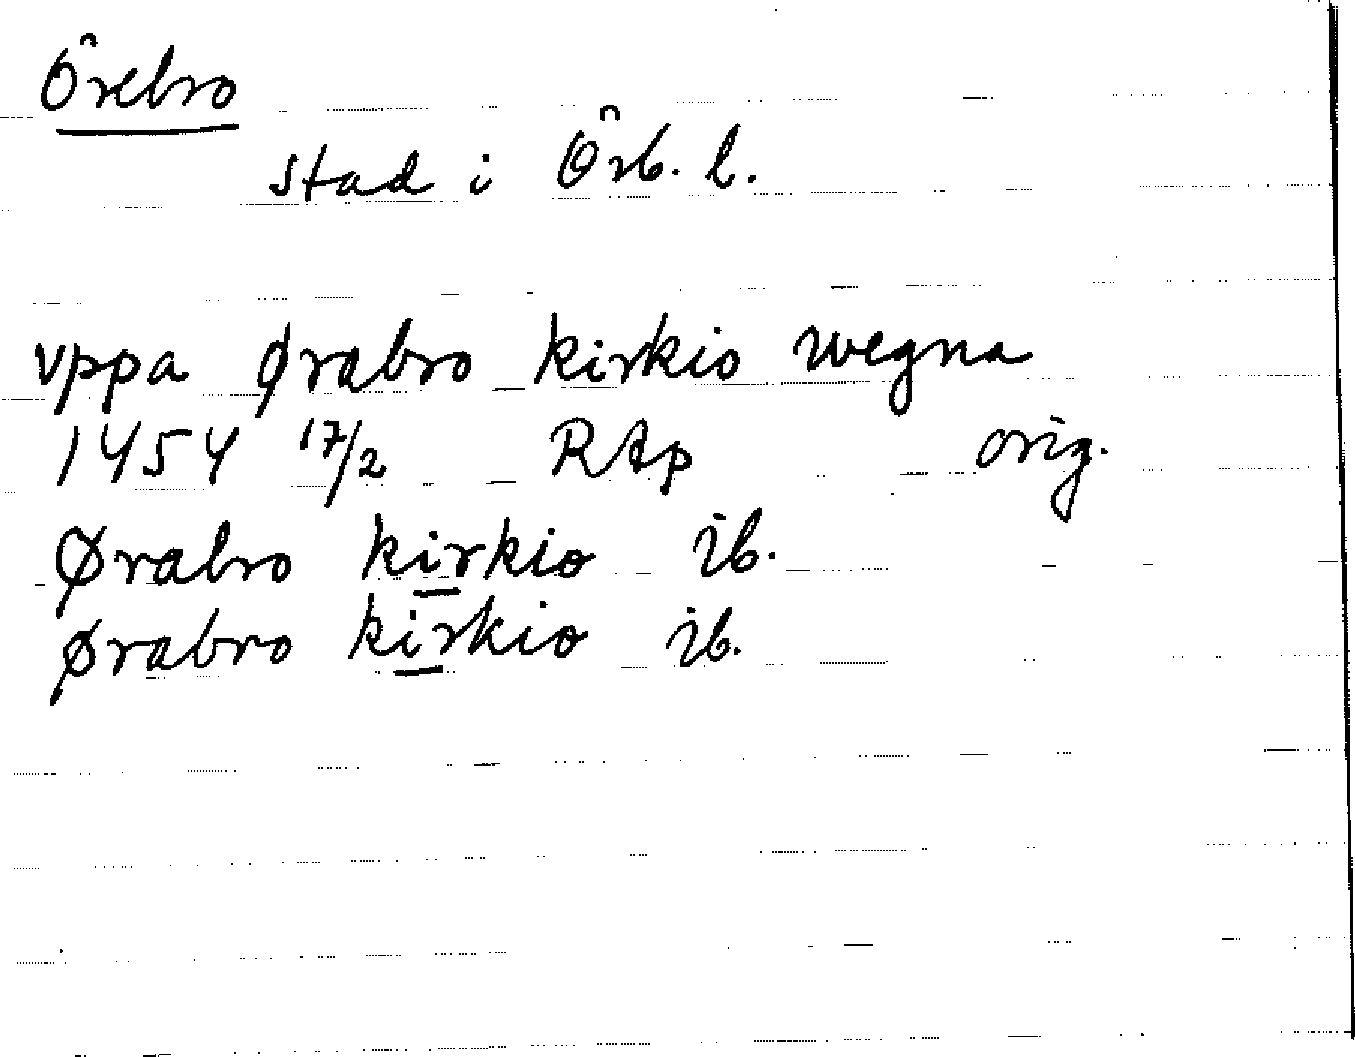 Örebro
stad i Örb. l.
vppa ørabro kirkio wegna
1454 17/2 RAp orig.
Ørabro kirkio ib.
Ørabro kirkio ib.